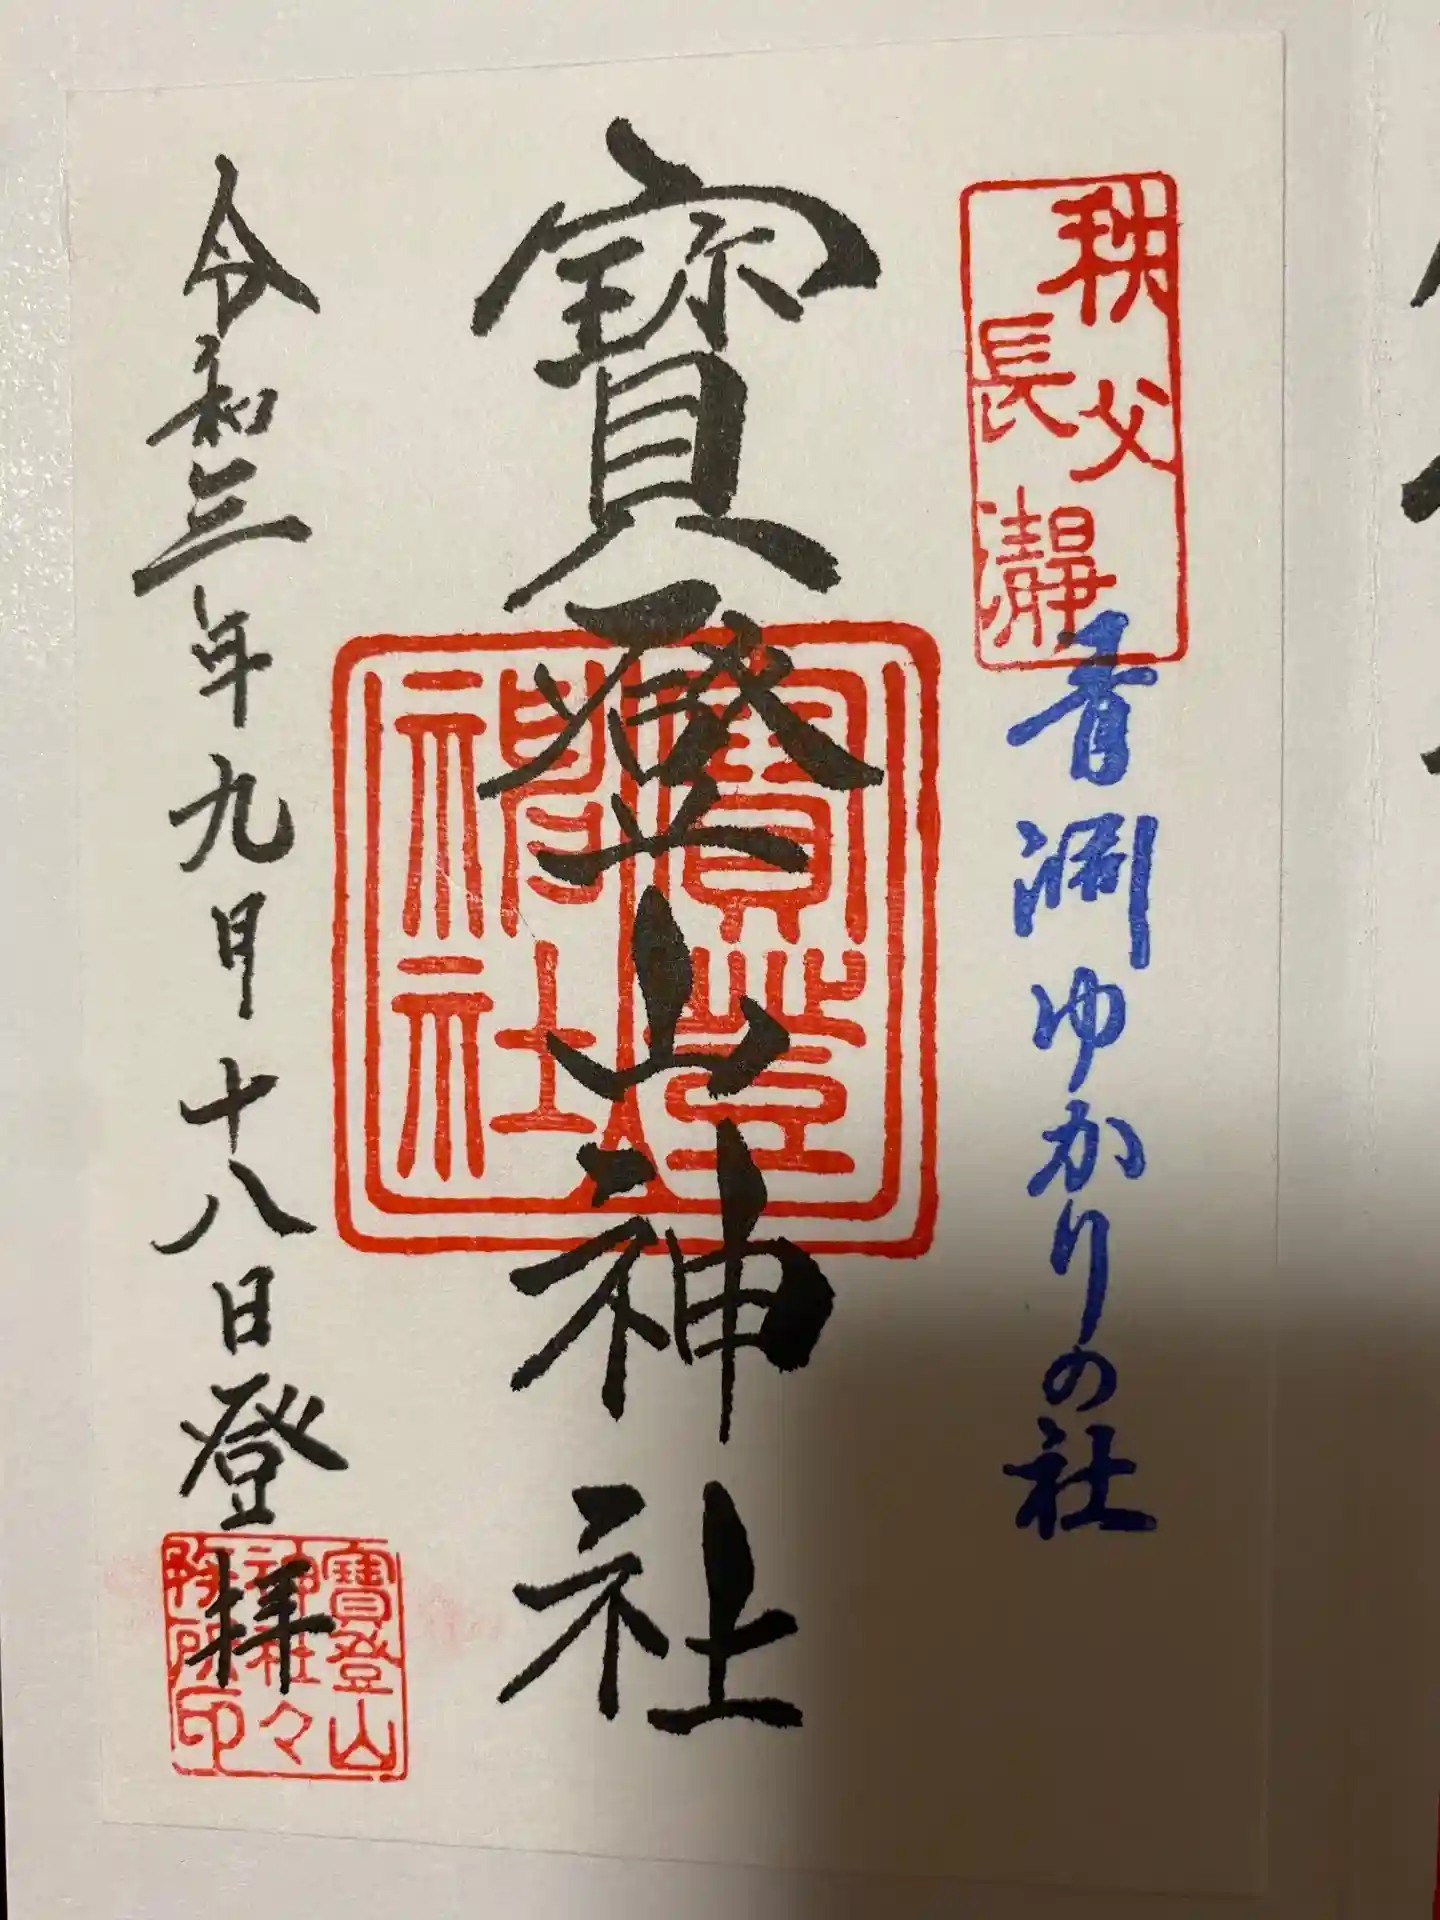 秩父
長瀞
青淵ゆかりの社
寳登山神社
寳登
神社
令和三年九月十八日登拝
寳登山
神社々
務所印